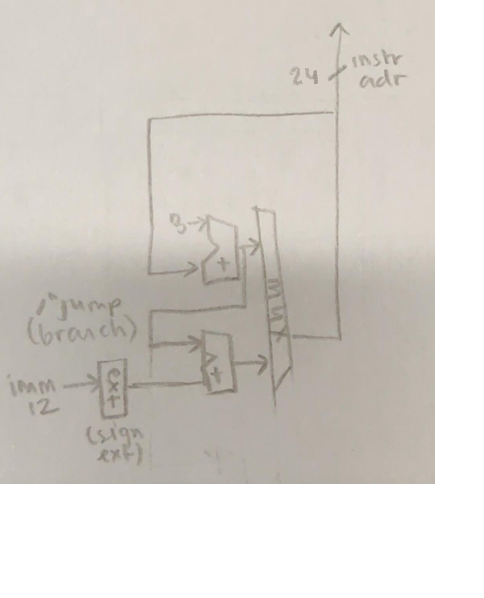 24
instr
adr
3
+
mux
jump
(branch)
+
imm
12
ext
(sign
ext)